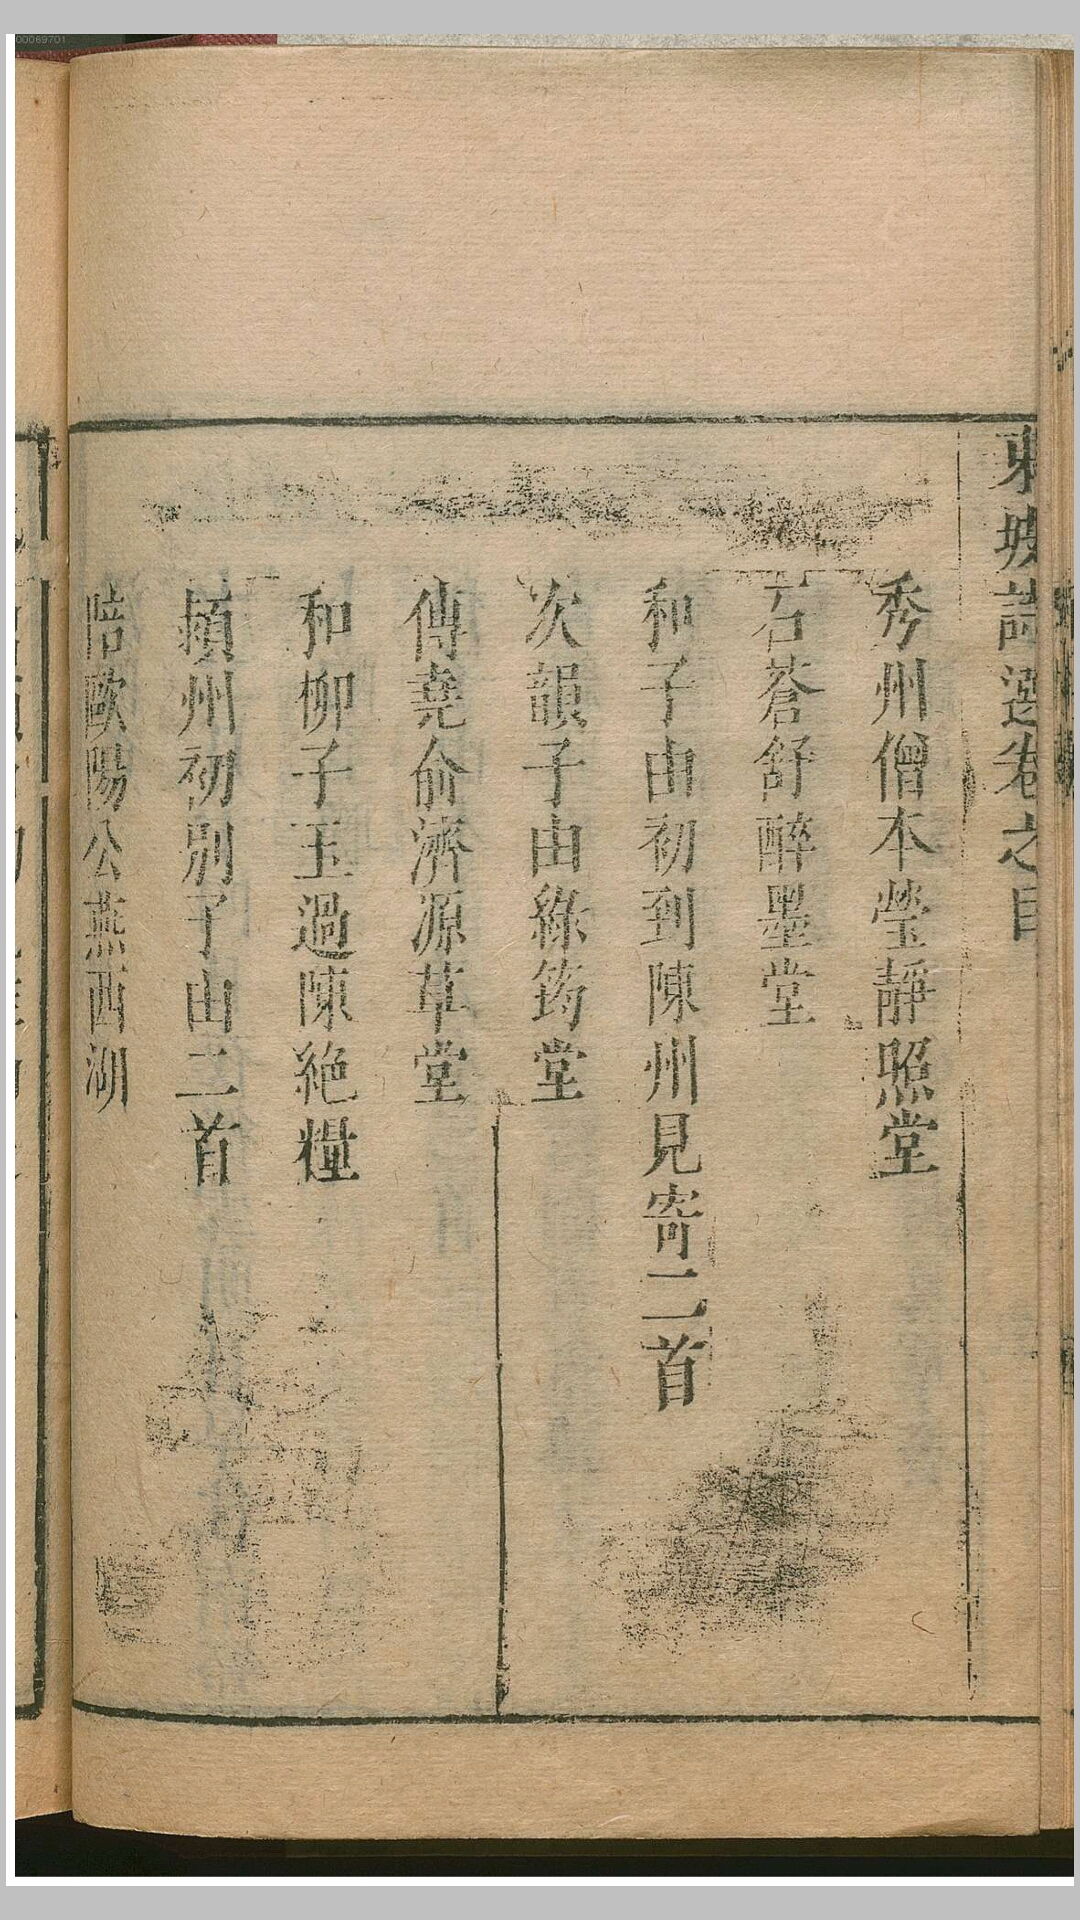 東坡詩選卷之目
秀州僧本瑩靜照堂
石蒼舒醉墨堂
和子由初到陳州見寄二首
次韻子由綠筠堂
傳堯俞濟源草堂
和柳子玉過陳絶糧
頴州初別子由二首
陪歐陽公燕西湖